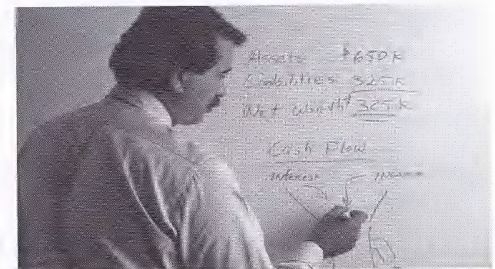 Assets $650K
Liabilities 325K
Net Worth $325K
Cash Flow
Interest Income